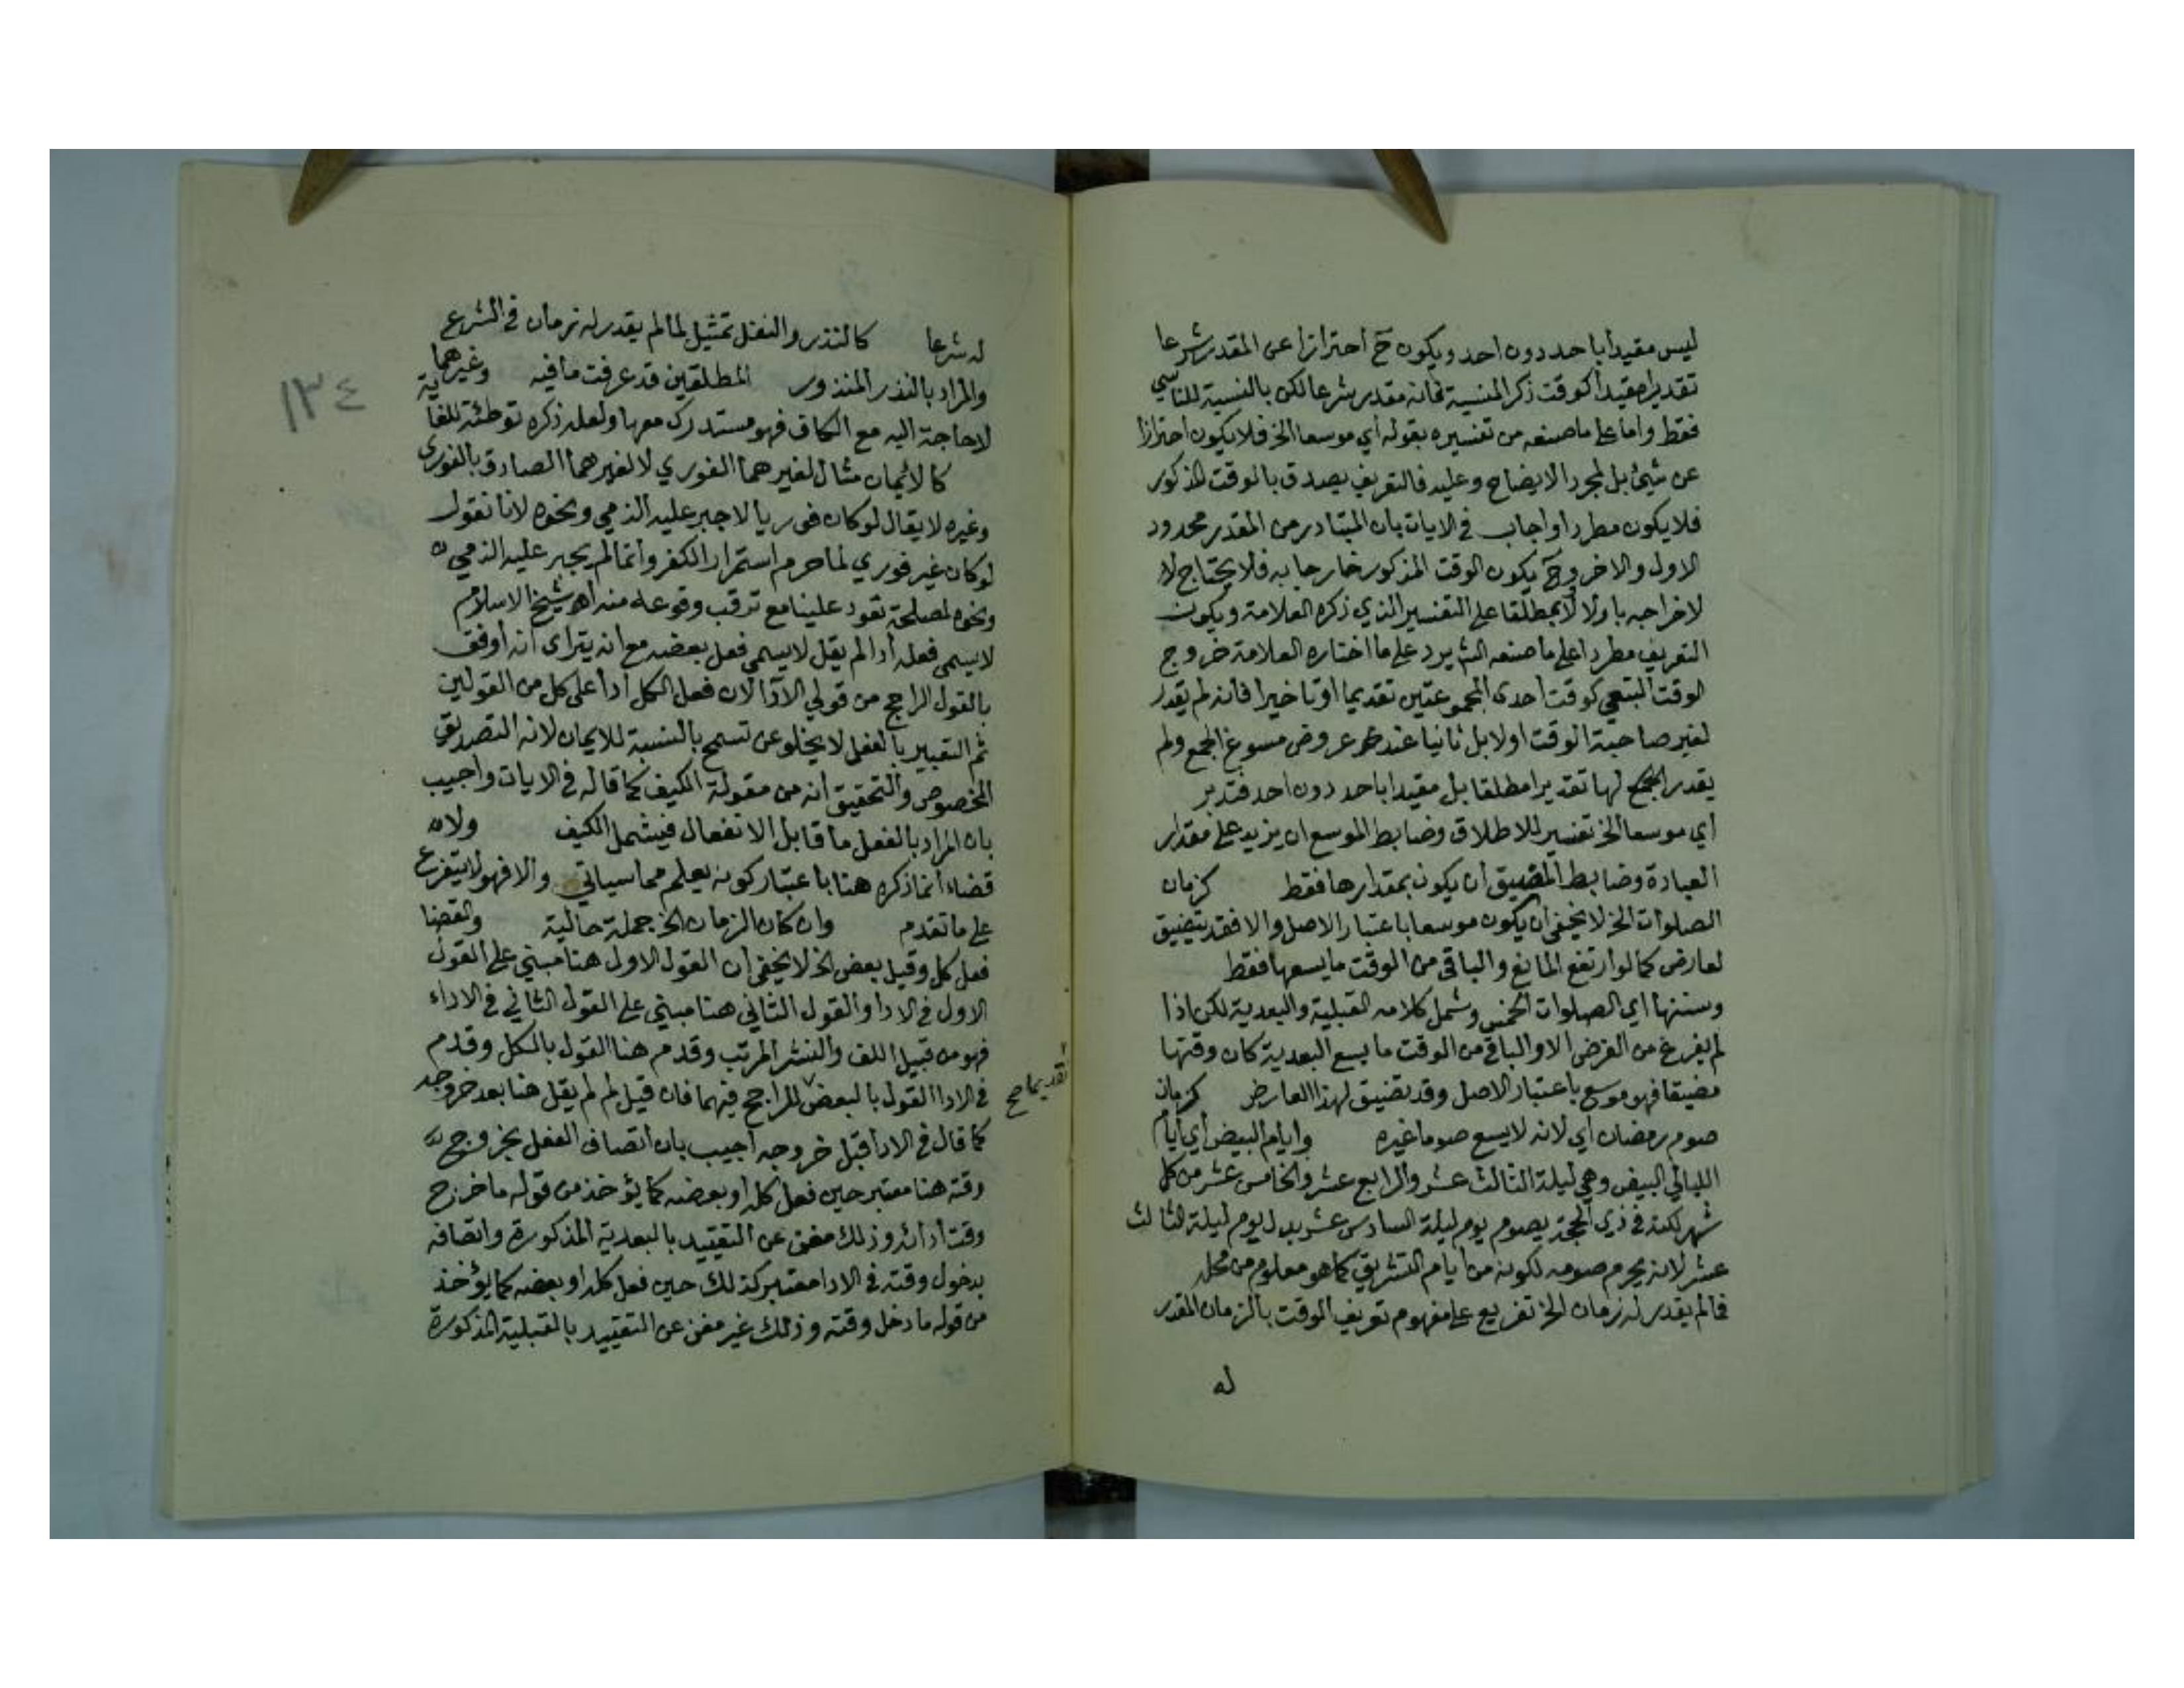 ليس مقيدا باحد دون احد ويكون ح احترازا عن المقدر شرعا
تقديرا مقيدا كوقت ذكر المنسية فانه مقدر شرعا لكن بالنسبة للناسي
فقط واما على ما صنعه من تفسيره بقوله أي موسعا الخ فلا يكون احترازا
عن شيئ بل لمجرد الايضاح وعليه فالتعريف يصدق بالوقت المذكور
فلا يكون مطردا واجاب في الايات بان المتبادر من المقدر محدود
الاول والاخر وح يكون الوقت المذكور خارجا به فلا يحتاج لا
لاخراجه باولا لا بمطلقا على التفسير الذي ذكره العلامة ويكون
التعريف مطردا على ما صنعه الش يرد على ما اختاره العلامة خروج
الوقت التبعي كوقت احدى المجموعتين تقديما او تاخيرا فانه لم يقدر
لغير صاحبة الوقت اولا بل ثانيا عند عروض مسوغ الجمع ولم
يقدر لها تقديرا مطلقا بل مقيدا باحد دون احد فتدبر
أي موسعا الخ تفسير للاطلاق وضابط الموسع ان يزيد على مقدار
العبادة وضابط المضيق ان يكون بمقدارها فقط كزمان
الصلوات الخ لا يخفى ان يكون موسعا باعتبار الاصل والا فقد يتضيق
لعارض كما لو ارتفع المانع والباقي من الوقت ما يسعها فقط
وسننها اي الصلوات الخمس وشمل كلامه القبلية والبعدية لكن اذا
لم يفرغ من الفرض الا والباقي من الوقت ما يسع البعدية كان وقتها
مضيقا فهو موسع باعتبار الاصل وقد تضيق لهذا العارض كزمان
صوم رمضان اي لانه لا يسع صوما غيره وايام البيض أي ايام
الليالي البيض وهي ليلة الثالث عشر والرابع عشر والخامس عشر من كل
شهر لكنه في ذي الحجة يصوم يوم ليلة السادس عشر بدل يوم ليلة الثالث
عشر لانه يحرم صومه لكونه من أيام التشريق كما هو معلوم من محله
فما لم يقدر له زمان الخ تفريع على مفهوم تعريف الوقت بالزمان المقدر
له
١٣٤
له شرعا كالنذر والنفل تمثيل لما لم يقدر له زمان في الشرع
والمراد بالنذر المنذور المطلقين قد عرفت ما فيه وغيرهما
لا حاجة اليه مع الكاف فهو مستدرك معها ولعله ذكره توطئة للغاية
كالايمان مثال لغيرهما الفوري لا لغيرهما الصادق بالفوري
وغيره لا يقال لو كان فوريا لاجبر عليه الذمي ونحوه لانا نقول
لو كان غير فوري لما حرم استمرار الكفر وانما لم يجبر عليه الذمي
ونحوه لمصلحة تعود علينا مع ترقب وقوعه منه اهـ شيخ الاسلام
لا يسمى فعله أدا لم يقل لا يسمى فعل بعضه مع انه يتراى انه أوفق
بالقول الراجح من قولي الادا لان فعل الكل أدا على كل من القولين
ثم التعبير بالفعل لا يخلو عن تسمح بالنسبة للايمان لانه التصديق
المخصوص والتحقيق انه من مقولة الكيف كما قاله في الايات واجيب
بان المراد بالفعل ما قابل الانفعال فيشمل الكيف ولا
قضاء انما ذكره هنا باعتبار كونه يعلم مما سياتي والا فهو لا يتفرع
على ما تقدم وان كان الزمان الخ جملة حالية والقضا
فعل كل وقيل بعض الخ لا يخفى ان القول الاول هنا مبني على القول
الاول في الادا والقول الثاني هنا مبني على القول الثاني في الاداء
فهو من قبيل اللف والنشر المرتب وقدم هنا القول بالكل وقدم
في الادا القول بالبعض للراجح فيهما فان قيل لم لم يقل هنا بعد خروجه
تقديما صح
كما قال في الادا قبل خروجه أجيب بان اتصاف الفعل بخروج
وقته هنا معتبر حين فعل كله او بعضه كما يؤخذ من قوله ما خرج
وقت أدائه وذلك مغن عن التقييد بالبعدية المذكورة واتصافه
بدخول وقته في الادا معتبر كذلك حين فعل كله او بعضه كما يؤخذ
من قوله ما دخل وقته وذلك غير مغن عن التقييد بالقبلية المذكورة